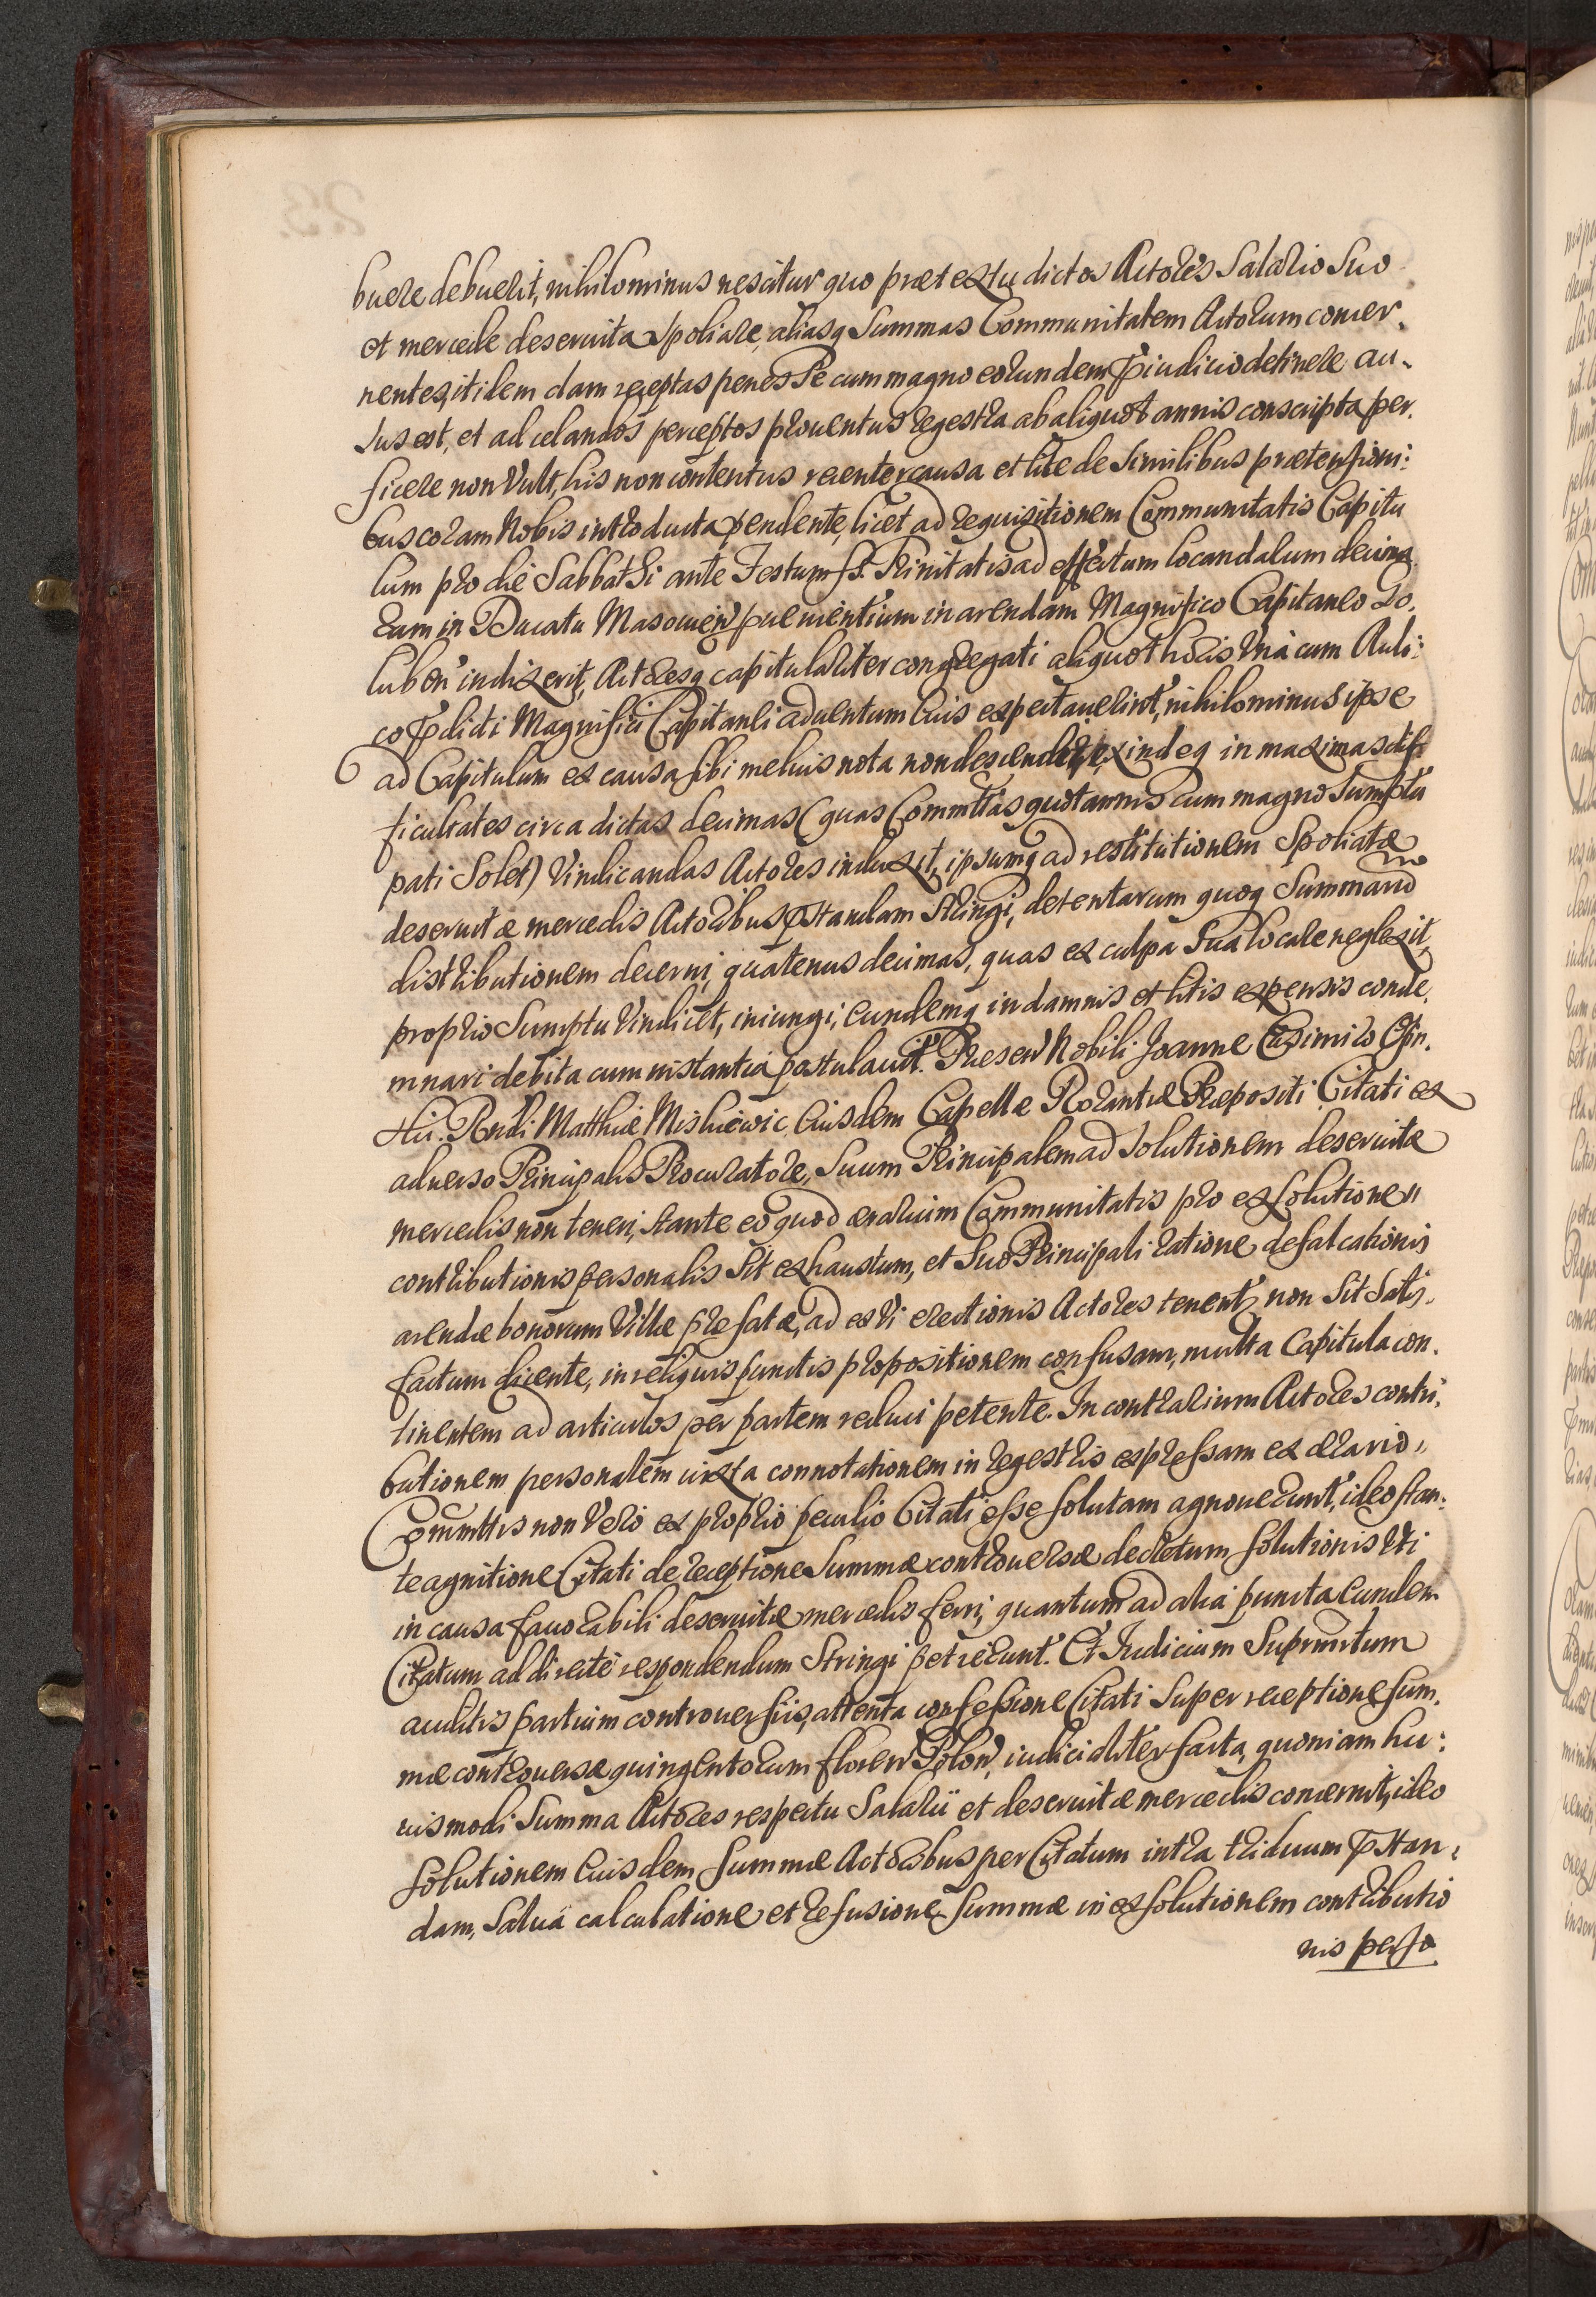 buere debuerit, nihilominus nescitur quo prætextu dictos Actores Salario Suo
et mercede deseruita Spoliare, aliasq Summas Communitatem Actorum concer,
nentes, itidem clam receptas penes Se cum magno eorundem Pjudicio detinere au-
sus est, et ad celandos perceptos prouentus regestra ab aliquot annis conscripta per,
ficere non Vult, his non contentus recenter causa et lite de Similibus prætensioni:
bus coram Nobis introducta pendente, licet ad requisitionem Communitatis Capitu
lum pro die Sabbathi ante Festum SS. Trinitatis ad effectum locandarum decima
rum in Ducatu Masouien puenientium in arendam Magnifico Capitaneo Go,
lub en indixerit, Actoresq capitulariter congregati aliquot horis Vnà cum Auli:
co Pdicti Magnifici Capitanei aduentum Eius expectauerint, nihilominus ipse
ad Capitulum ex causa sibi melius nota non descenderit, exindeq in maximas dif:
ficultates circa dictas decimas (quas Commttas quotannis cum magno Sumptu
pati Solet) Vindicandas Actores induxit, ipsumq ad restitutionem Spoliatæ
deseruitæ mercedis Actoribus Pstandam Stringi, detentarum quoq Summarum
distributionem decerni, quatenus decimas, quas ex culpa Sua locare neglexit,
proprio Sumptu Vindicet, iniungi, Eundemq in damnis et litis expensis conde,
mnari debita cum instantia postulauit. Præsen Nobili Joanne Casimiro
Rndi Matthiæ Eiusdem Capellæ Rorantiæ Præpositi Citati ex
aduerso Principalis Procuratore, Suum Principalem ad Solutionem deseruitæ
mercedis non teneri, Stante eo quod ærarium Communitatis pro exsolutione
contributionis personalis Sit exhaustum, et Suo Principali ratione defalcationis
arendæ bonorum Villæ præfatæ, ad ex Vi erectionis Actores tenent, non Sit Satis,
factum dicente, in reliquis punctis propositionem confusam, multa Capitula con,
tinentem ad articulos per partem reduci petente. In contrarium Actores contri,
butionem personalem iuxta connotationem in regestris expressam ex ærario
Commttis non Vero ex proprio peculio Citati esse solutam agnouerunt, ideo stan:
te agnitione Citati de receptione Summæ controuersæ decretum solutionis Vti
in causa fauorabili deseruitæ mercedis ferri, quantum ad alia puncta Eundem
Citatum ad directe respondendum Stringi petierunt. Et Iudicium Suprannotatum
auditis partium controuersiis, attenta confessione Citati Super receptione sum,
mæ controuersæ quingentorum floren Polon, iudicialiter facta, quoniam hu:
iusmodi Summa Actores respectu Salarii et deseruitæ mercedis concernit, ideo
solutionem Eiusdem summæ Actoribus per Citatum intra triduum Pstan,
dam, Salua calculatione et refusione summæ in exsolutionem contributio
nis perso